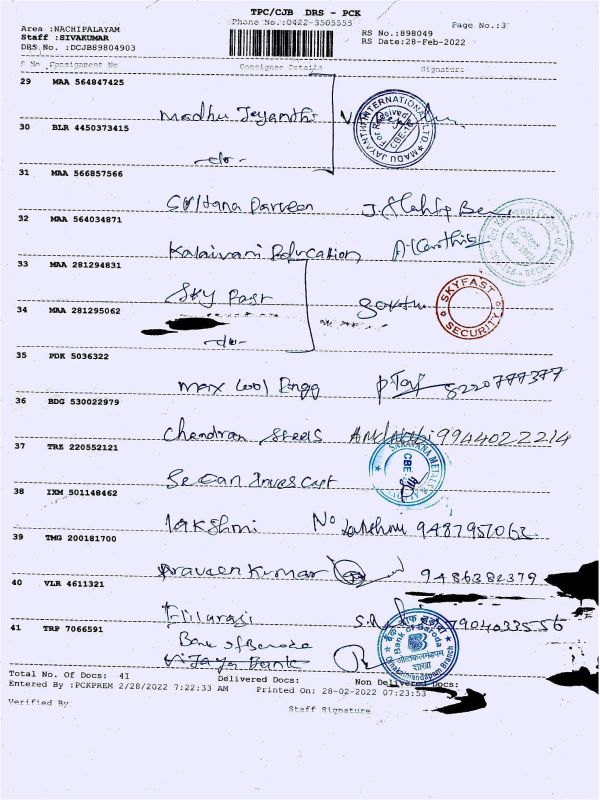 TPC/CJB DRS - PCK
Phone No.:0422-3505555
Page No.:3
Area :NACHIPALAYAM
Staff :SIVAKUMAR
DRS No. :DCJB89804903
RS No.:898049
RS Date:28-Feb-2022
S No Consignment No Consignee Details Signature
29 MAA 564847425
Madhu Jeyanthi
30 BLR 4450373415
-do-
31 MAA 566857566
Sultana Parveen
32 MAA 564034871
Kalaivani Education A. Karthik
33 MAA 281294831
Sky Fast
SKYFAST
SECURITY
34 MAA 281295062
-do-
35 PDK 5036322
Max Cool Engg 8220777377
36 BDG 530022979
Chandran Steels 9944022214
37 TRZ 220552121
38 IXM 501148462
Lakshmi No 9487951062
39 TMG 200181700
Praveen Kumar 9486382379
40 VLR 4611321
Elilarasi 7904033556
41 TRP 7066591
Bank of Baroda
Vijaya Bank
बैंक ऑफ़ बड़ौदा
Bank of Baroda
शाखा
Total No. Of Docs: 41 Delivered Docs: Non Delivered Docs:
Entered By :PCKPREM 2/28/2022 7:22:33 AM Printed On: 28-02-2022 07:23:53
Verified By
Staff Signature